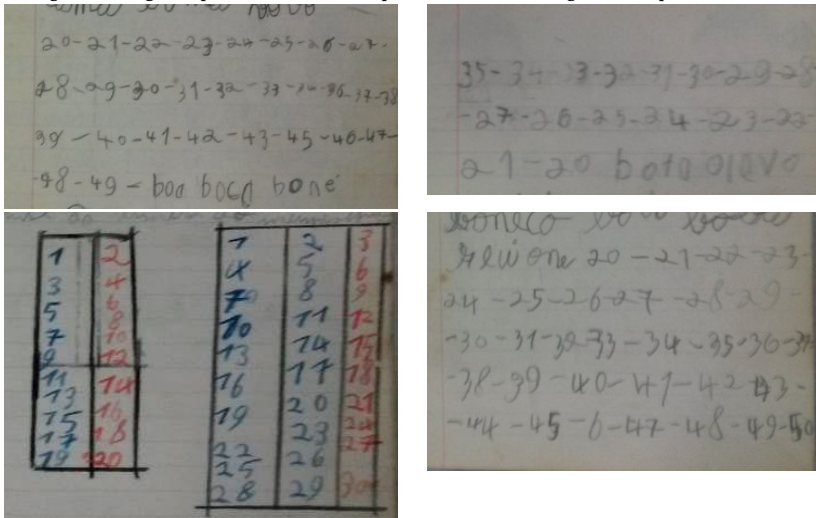 20-21-22-23-24-25-26-27-
28-29-30-31-32-33-34-36-37-38
39-40-41-42-43-45-46-47-
48-49-boa boca boné
35-34-33-32-31-30-29-28
-27-26-25-24-23-22-
21-20 bota olavo
1 2
3 4
5 6
7 8
9 10
12
11 14
13 16
15 18
17 20
19
1 2 3
4 5 6
7 8 9
10 11 12
13 14 15
16 17 18
19 20 21
22 23 24
25 26 27
28 29 30
boneco
20-21-22-23-
24-25-26-27-28-29-
-30-31-32-33-34-35-36-37
-38-39-40-41-42-43-
-44-45-6-47-48-49-50